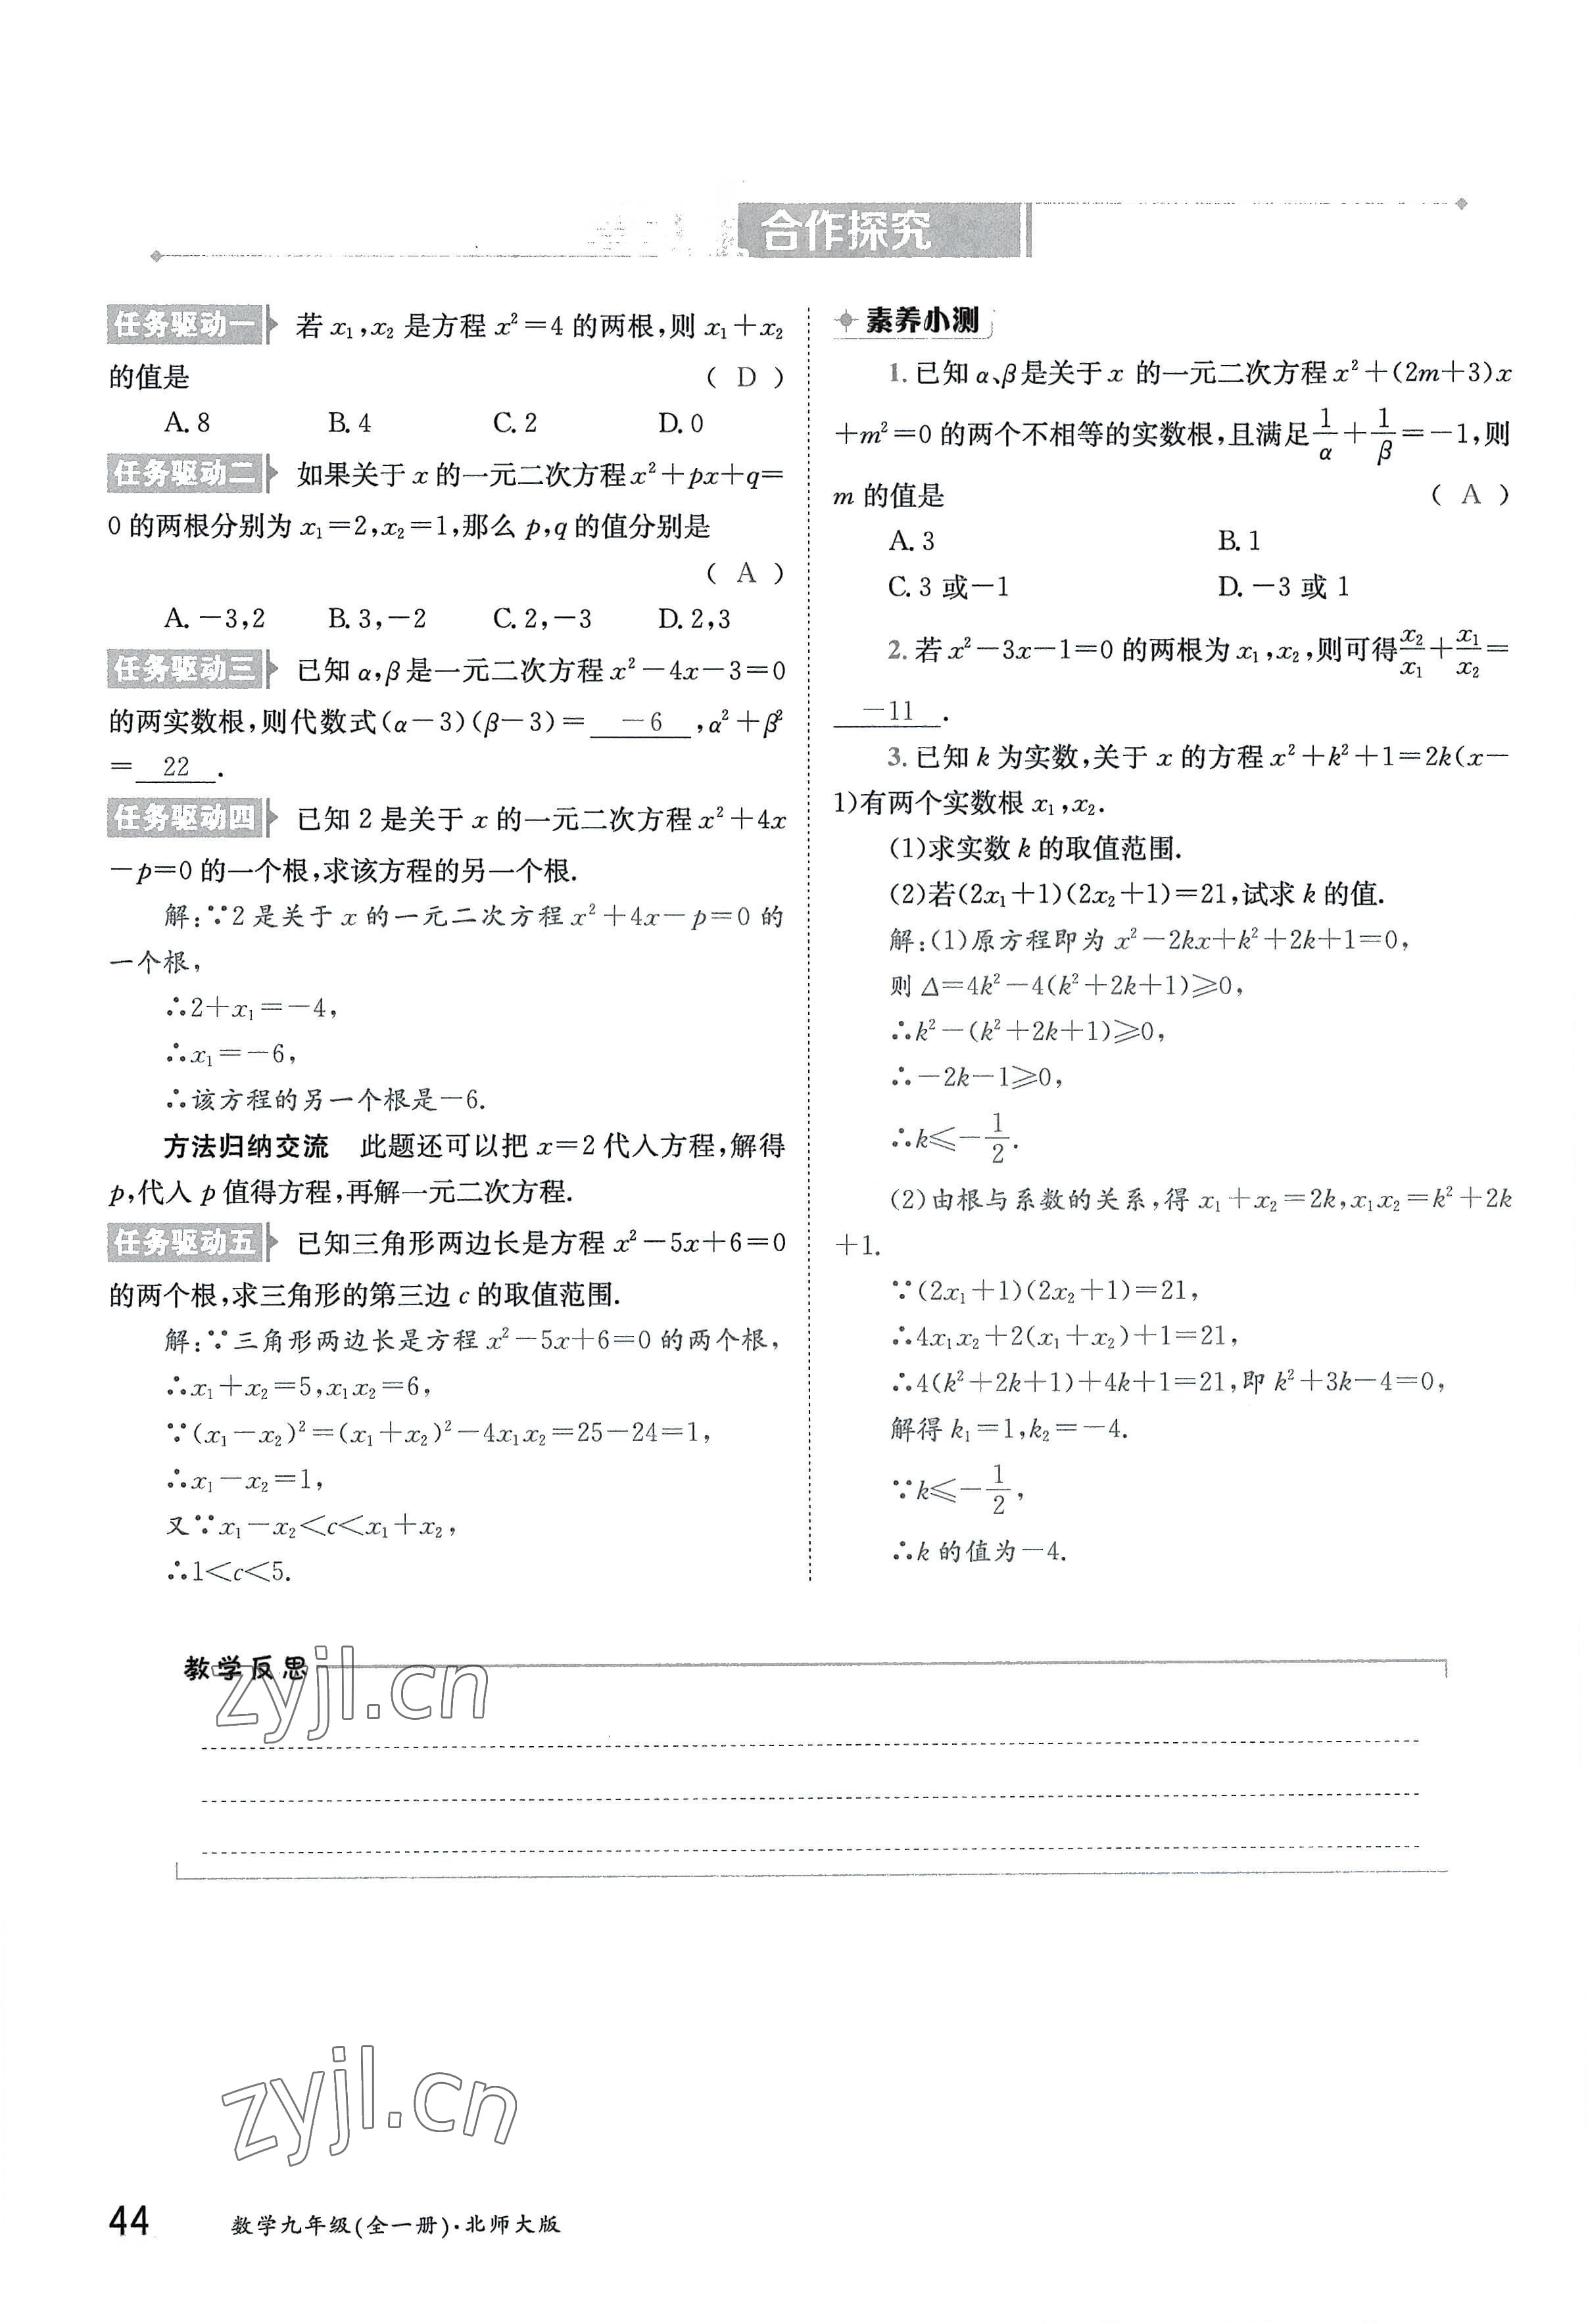 合作探究
任务驱动一 若 x₁,x₂ 是方程 x²=4 的两根,则 x₁+x₂
的值是 ( D )
A. 8 B. 4 C. 2 D. 0
任务驱动二 如果关于 x 的一元二次方程 x²+px+q=
0 的两根分别为 x₁=2,x₂=1,那么 p,q 的值分别是
( A )
A. -3,2 B. 3,-2 C. 2,-3 D. 2,3
任务驱动三 已知 α,β 是一元二次方程 x²-4x-3=0
的两实数根,则代数式(α-3)(β-3)= -6 ,α²+β²
= 22 .
任务驱动四 已知 2 是关于 x 的一元二次方程 x²+4x
-p=0 的一个根,求该方程的另一个根.
解:∵2 是关于 x 的一元二次方程 x²+4x-p=0 的
一个根,
∴2+x₁=-4,
∴x₁=-6,
∴该方程的另一个根是-6.
方法归纳交流 此题还可以把 x=2 代入方程,解得
p,代入 p 值得方程,再解一元二次方程.
任务驱动五 已知三角形两边长是方程 x²-5x+6=0
的两个根,求三角形的第三边 c 的取值范围.
解:∵三角形两边长是方程 x²-5x+6=0 的两个根,
∴x₁+x₂=5,x₁x₂=6,
∵(x₁-x₂)²=(x₁+x₂)²-4x₁x₂=25-24=1,
∴x₁-x₂=1,
又∵x₁-x₂<c<x₁+x₂,
∴1<c<5.
素养小测
1. 已知 α、β是关于 x 的一元二次方程 x²+(2m+3)x
+m²=0 的两个不相等的实数根,且满足 1/α + 1/β =-1,则
m 的值是 ( A )
A. 3 B. 1
C. 3 或-1 D. -3 或 1
2. 若 x²-3x-1=0 的两根为 x₁,x₂,则可得 x₂/x₁ + x₁/x₂ =
-11 .
3. 已知 k 为实数,关于 x 的方程 x²+k²+1=2k(x-
1)有两个实数根 x₁,x₂.
(1)求实数 k 的取值范围.
(2)若(2x₁+1)(2x₂+1)=21,试求 k 的值.
解:(1)原方程即为 x²-2kx+k²+2k+1=0,
则 Δ=4k²-4(k²+2k+1)≥0,
∴k²-(k²+2k+1)≥0,
∴-2k-1≥0,
∴k≤-1/2.
(2)由根与系数的关系,得 x₁+x₂=2k,x₁x₂=k²+2k
+1.
∵(2x₁+1)(2x₂+1)=21,
∴4x₁x₂+2(x₁+x₂)+1=21,
∴4(k²+2k+1)+4k+1=21,即 k²+3k-4=0,
解得 k₁=1,k₂=-4.
∵k≤-1/2,
∴k 的值为-4.
教学反思
zyjl.cn
zyjl.cn
44 数学九年级(全一册)·北师大版